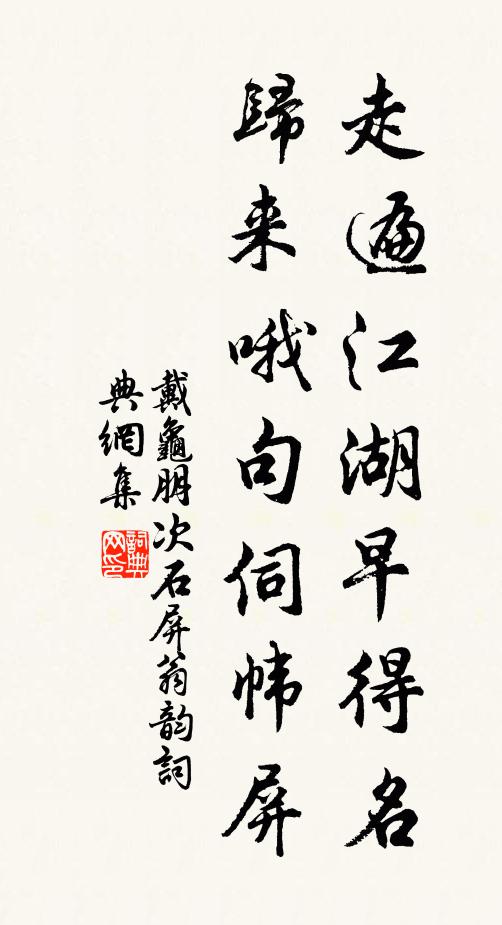 走遍江湖早得名
歸来哦句伺帏屏
戴龜朋次石屏翁韵詞
典網集
詞典网印